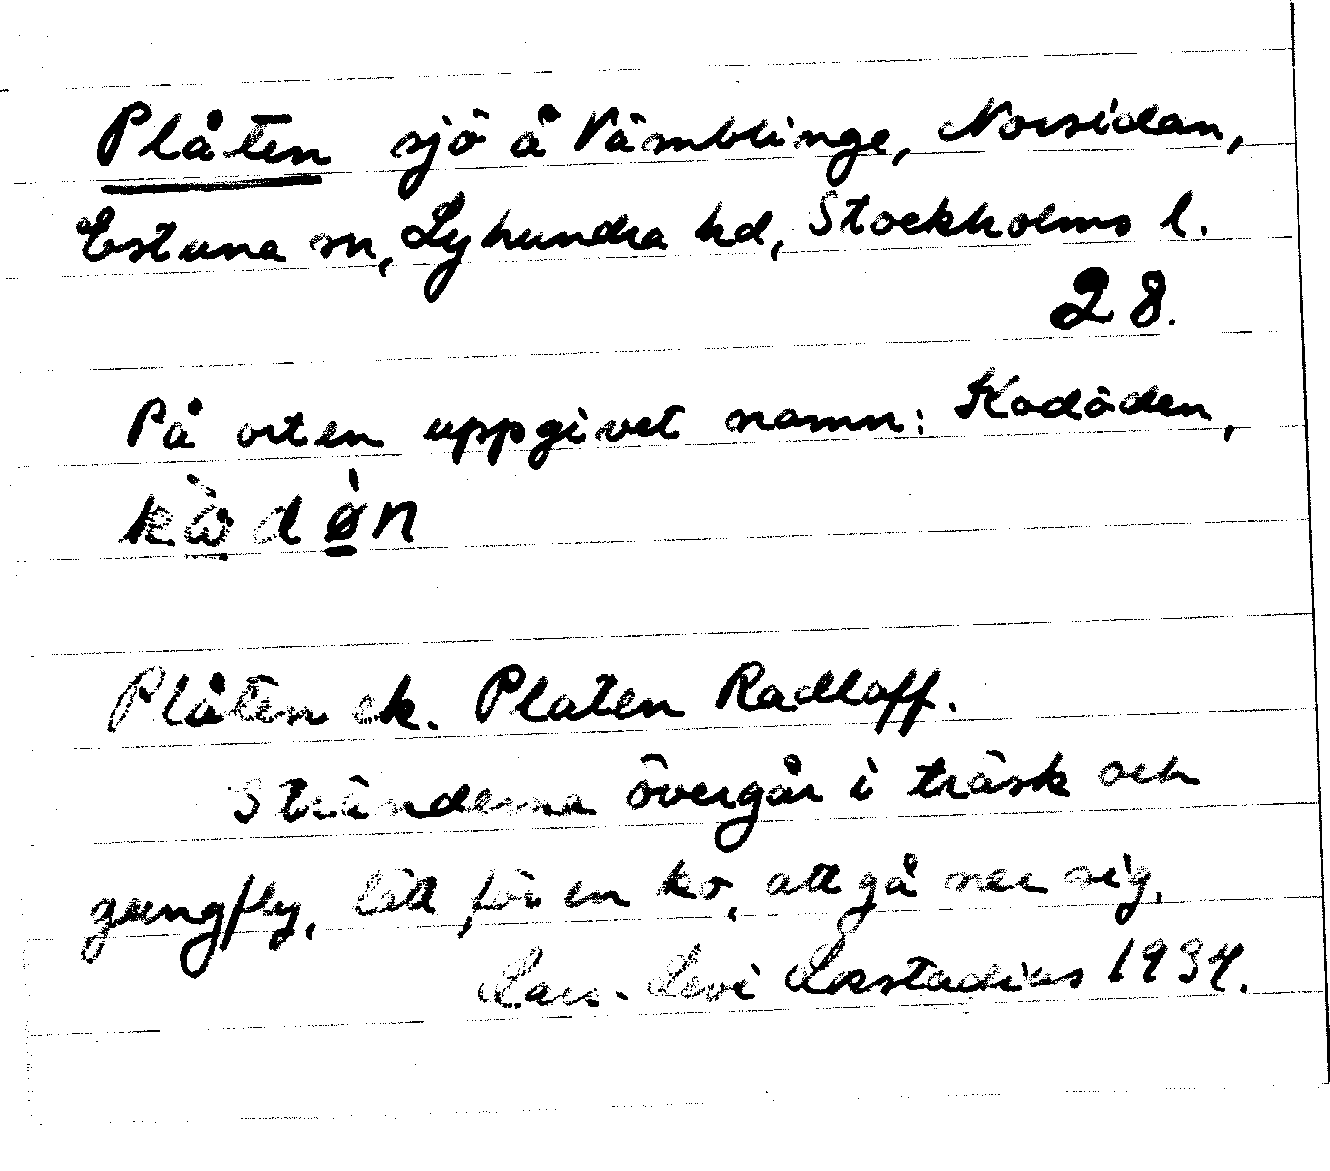 Plåten sjö å Vämblinge, Norsidan,
Estuna sn, Lyhundra hd, Stockholms l.
28.
På orten uppgivet namn: Kodöden,
kὼdø̀n
Plåten ek. Platen Radloff.
Stränderna övergår i träsk och
gungfly, lätt för en ko, att gå ner sig.
Lars-Levi Læstadius 1934.